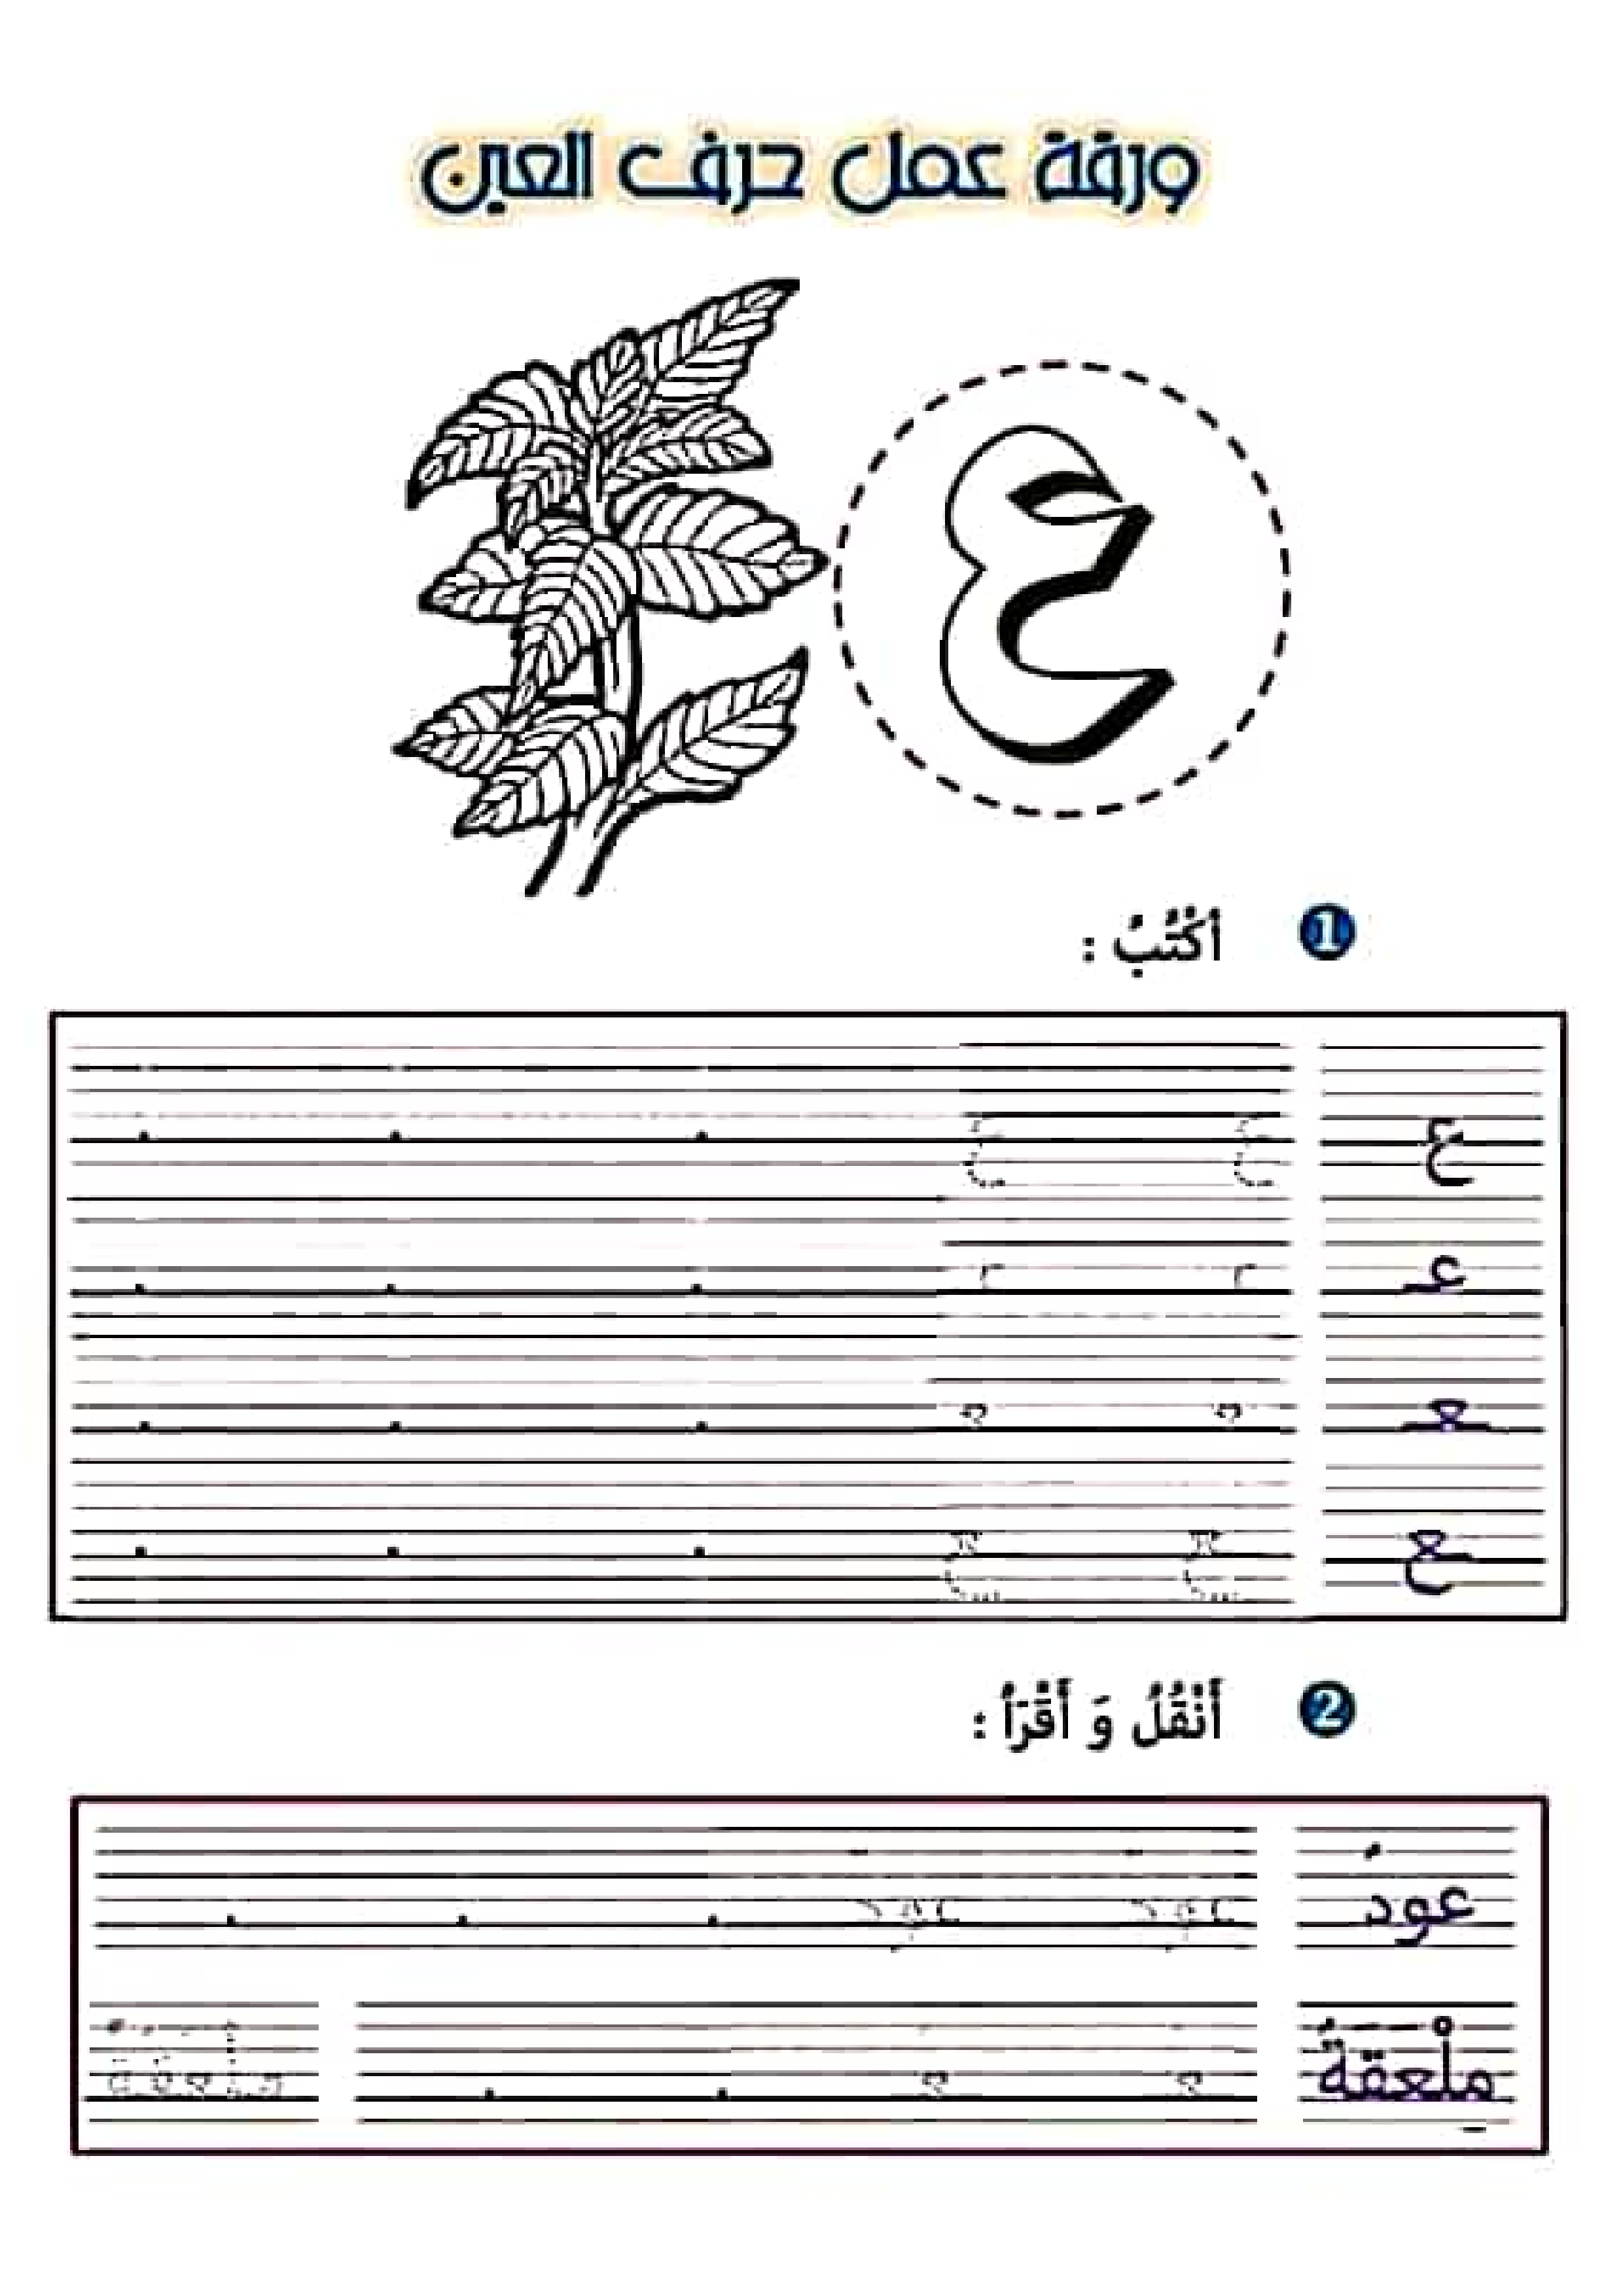 ورقة عمل حرف العين
ع
1 أكْتُبُ :
ع
عـ
ـعـ
ـع
2 أَنْقُلُ وَ أَقْرَأُ :
عودُ
مِلْعقةُ